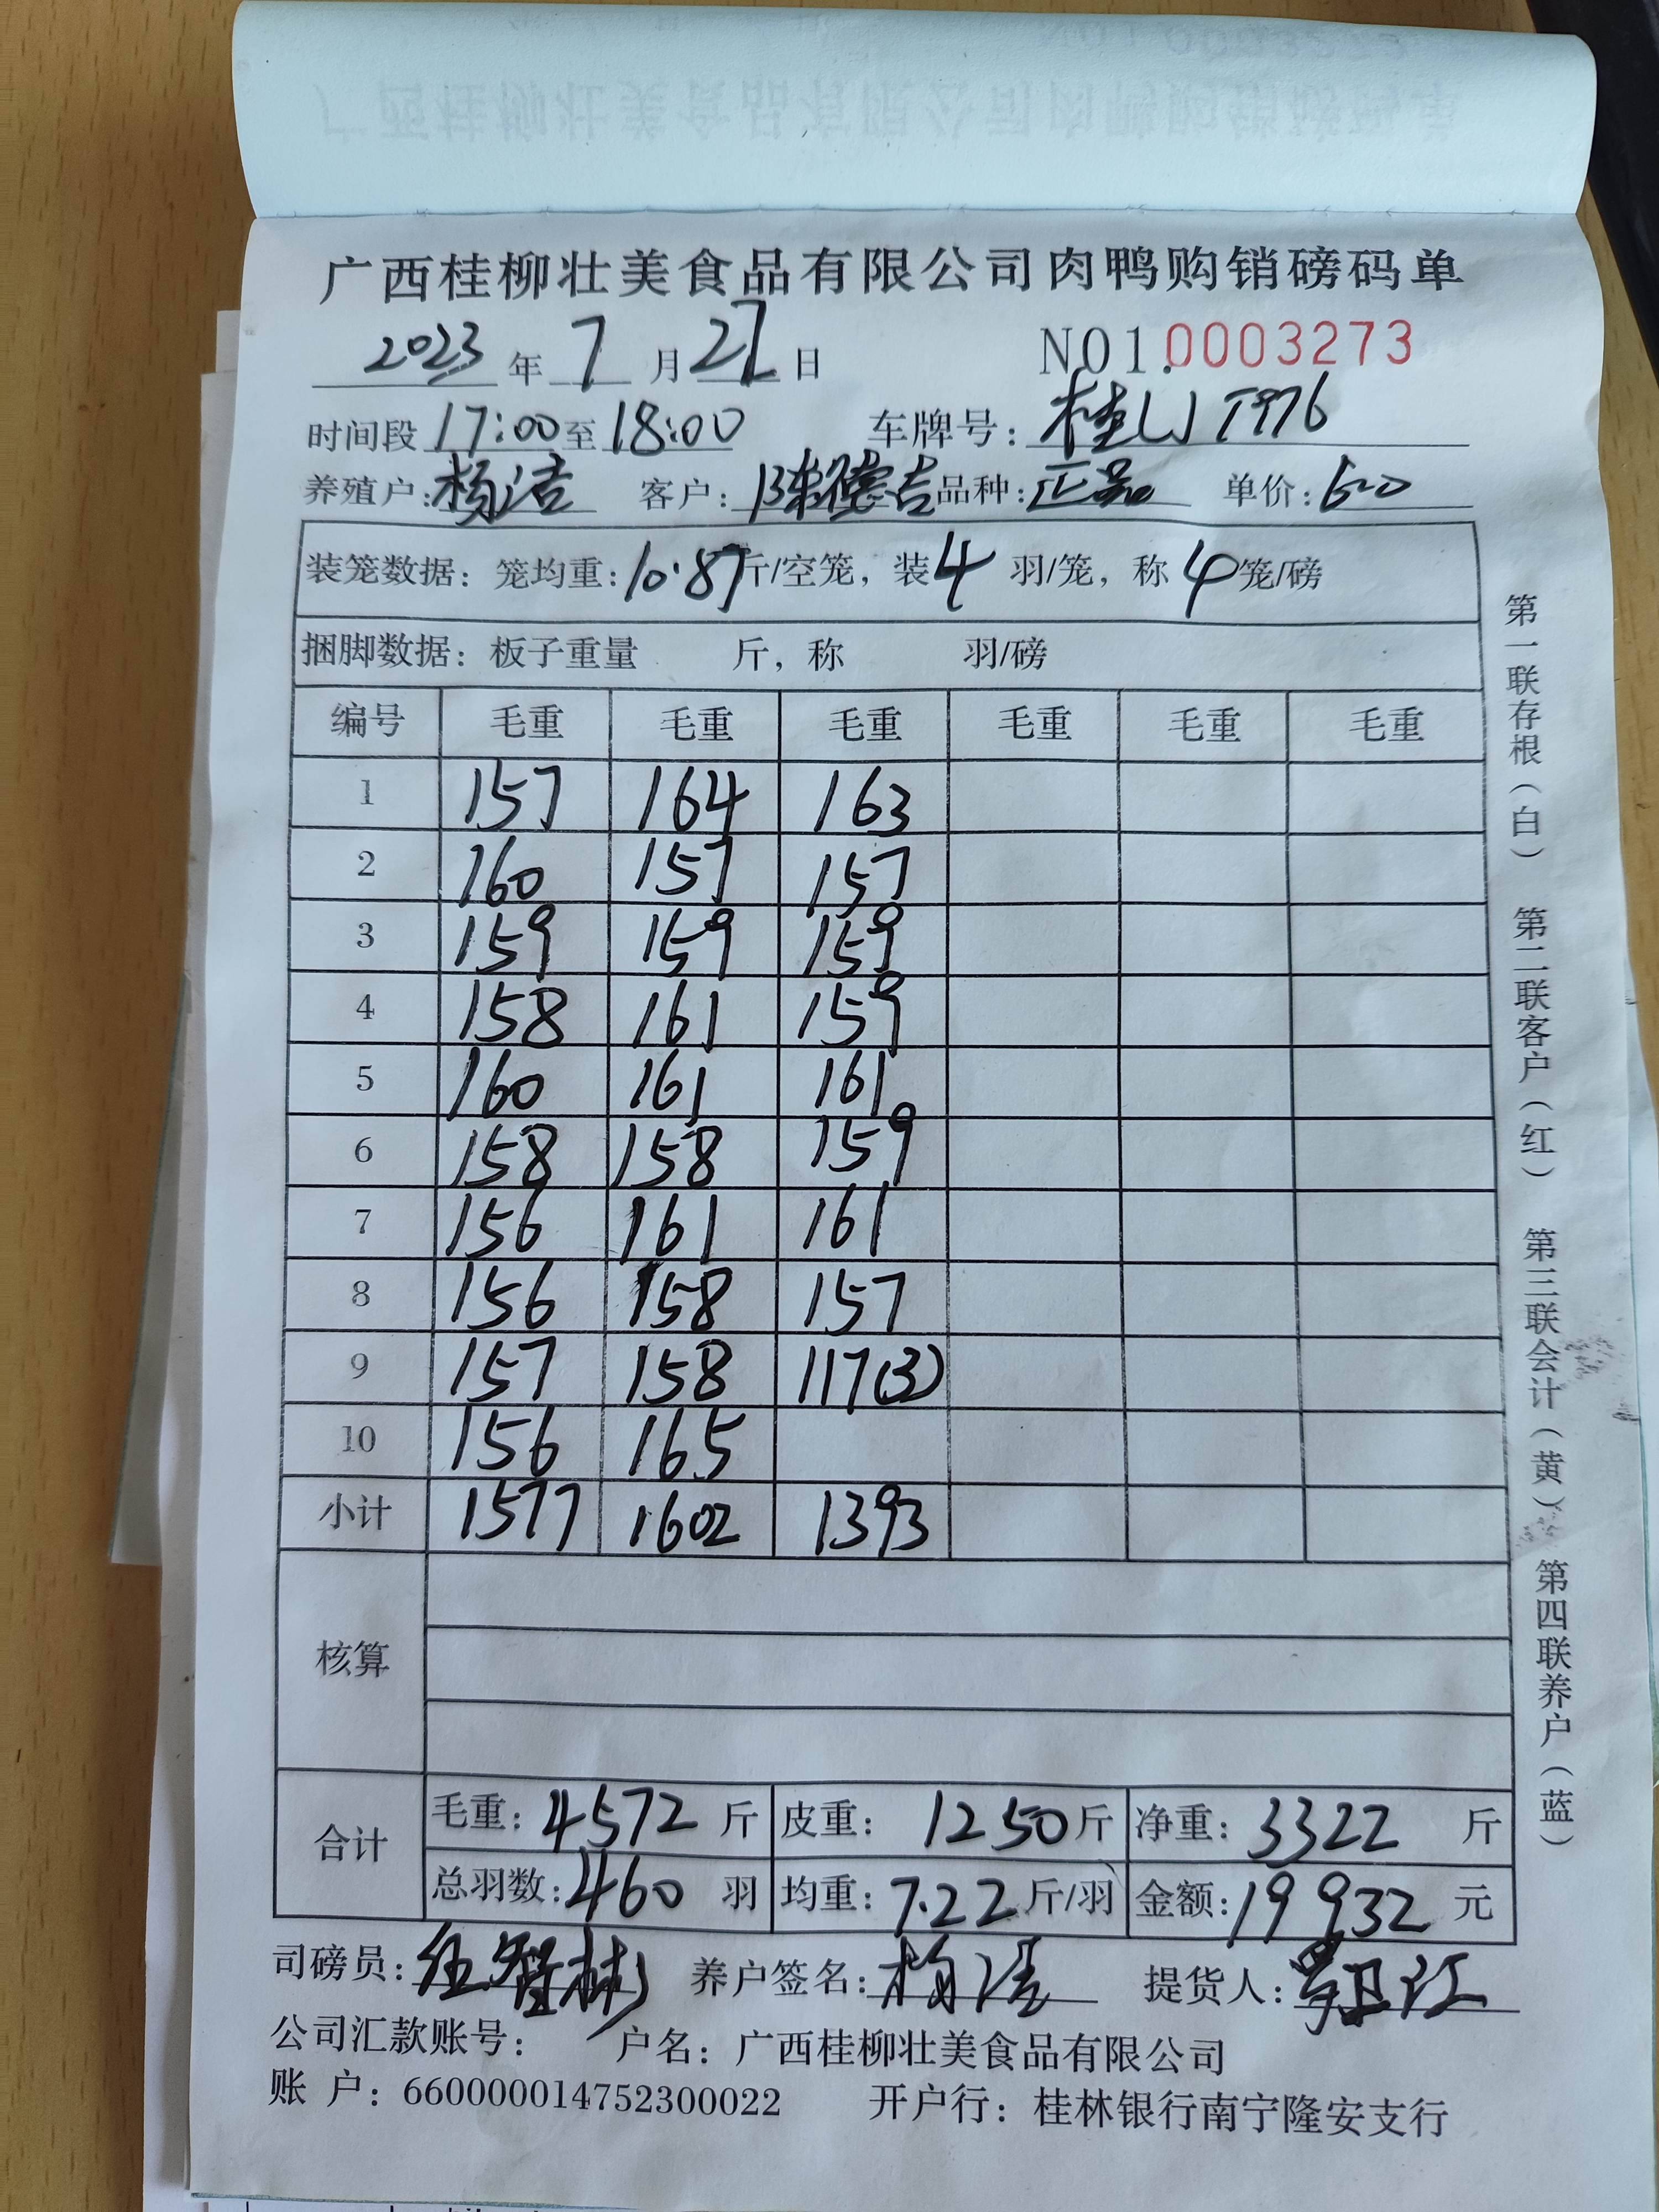 广西桂柳壮美食品有限公司肉鸭购销磅码单
2023年7月27日 NO1.0003273
时间段17:00至18:00 车牌号:桂
养殖户:杨洁 客户:陈德吉 品种:正品 单价:6.0
装笼数据: 笼均重:10.87斤/空笼, 装4羽/笼, 称4笼/磅
捆脚数据: 板子重量 斤, 称 羽/磅
编号 毛重 毛重 毛重 毛重 毛重 毛重
1 157 164 163
2 160 157 157
3 159 159 159
4 158 161 159
5 160 161 161
6 158 158 159
7 156 161 161
8 156 158 157
9 157 158 117(3)
10 156 165
小计 1577 1602 1393
核算
合计 毛重: 4572 斤 皮重: 1250斤 净重: 3322 斤
总羽数:460 羽 均重: 7.22斤/羽 金额:19932 元
司磅员:伍智彬 养户签名:杨洁 提货人:
公司汇款账号: 户名: 广西桂柳壮美食品有限公司
账 户: 660000014752300022 开户行: 桂林银行南宁隆安支行
第一联存根(白) 第二联客户(红) 第三联会计(黄) 第四联养户(蓝)